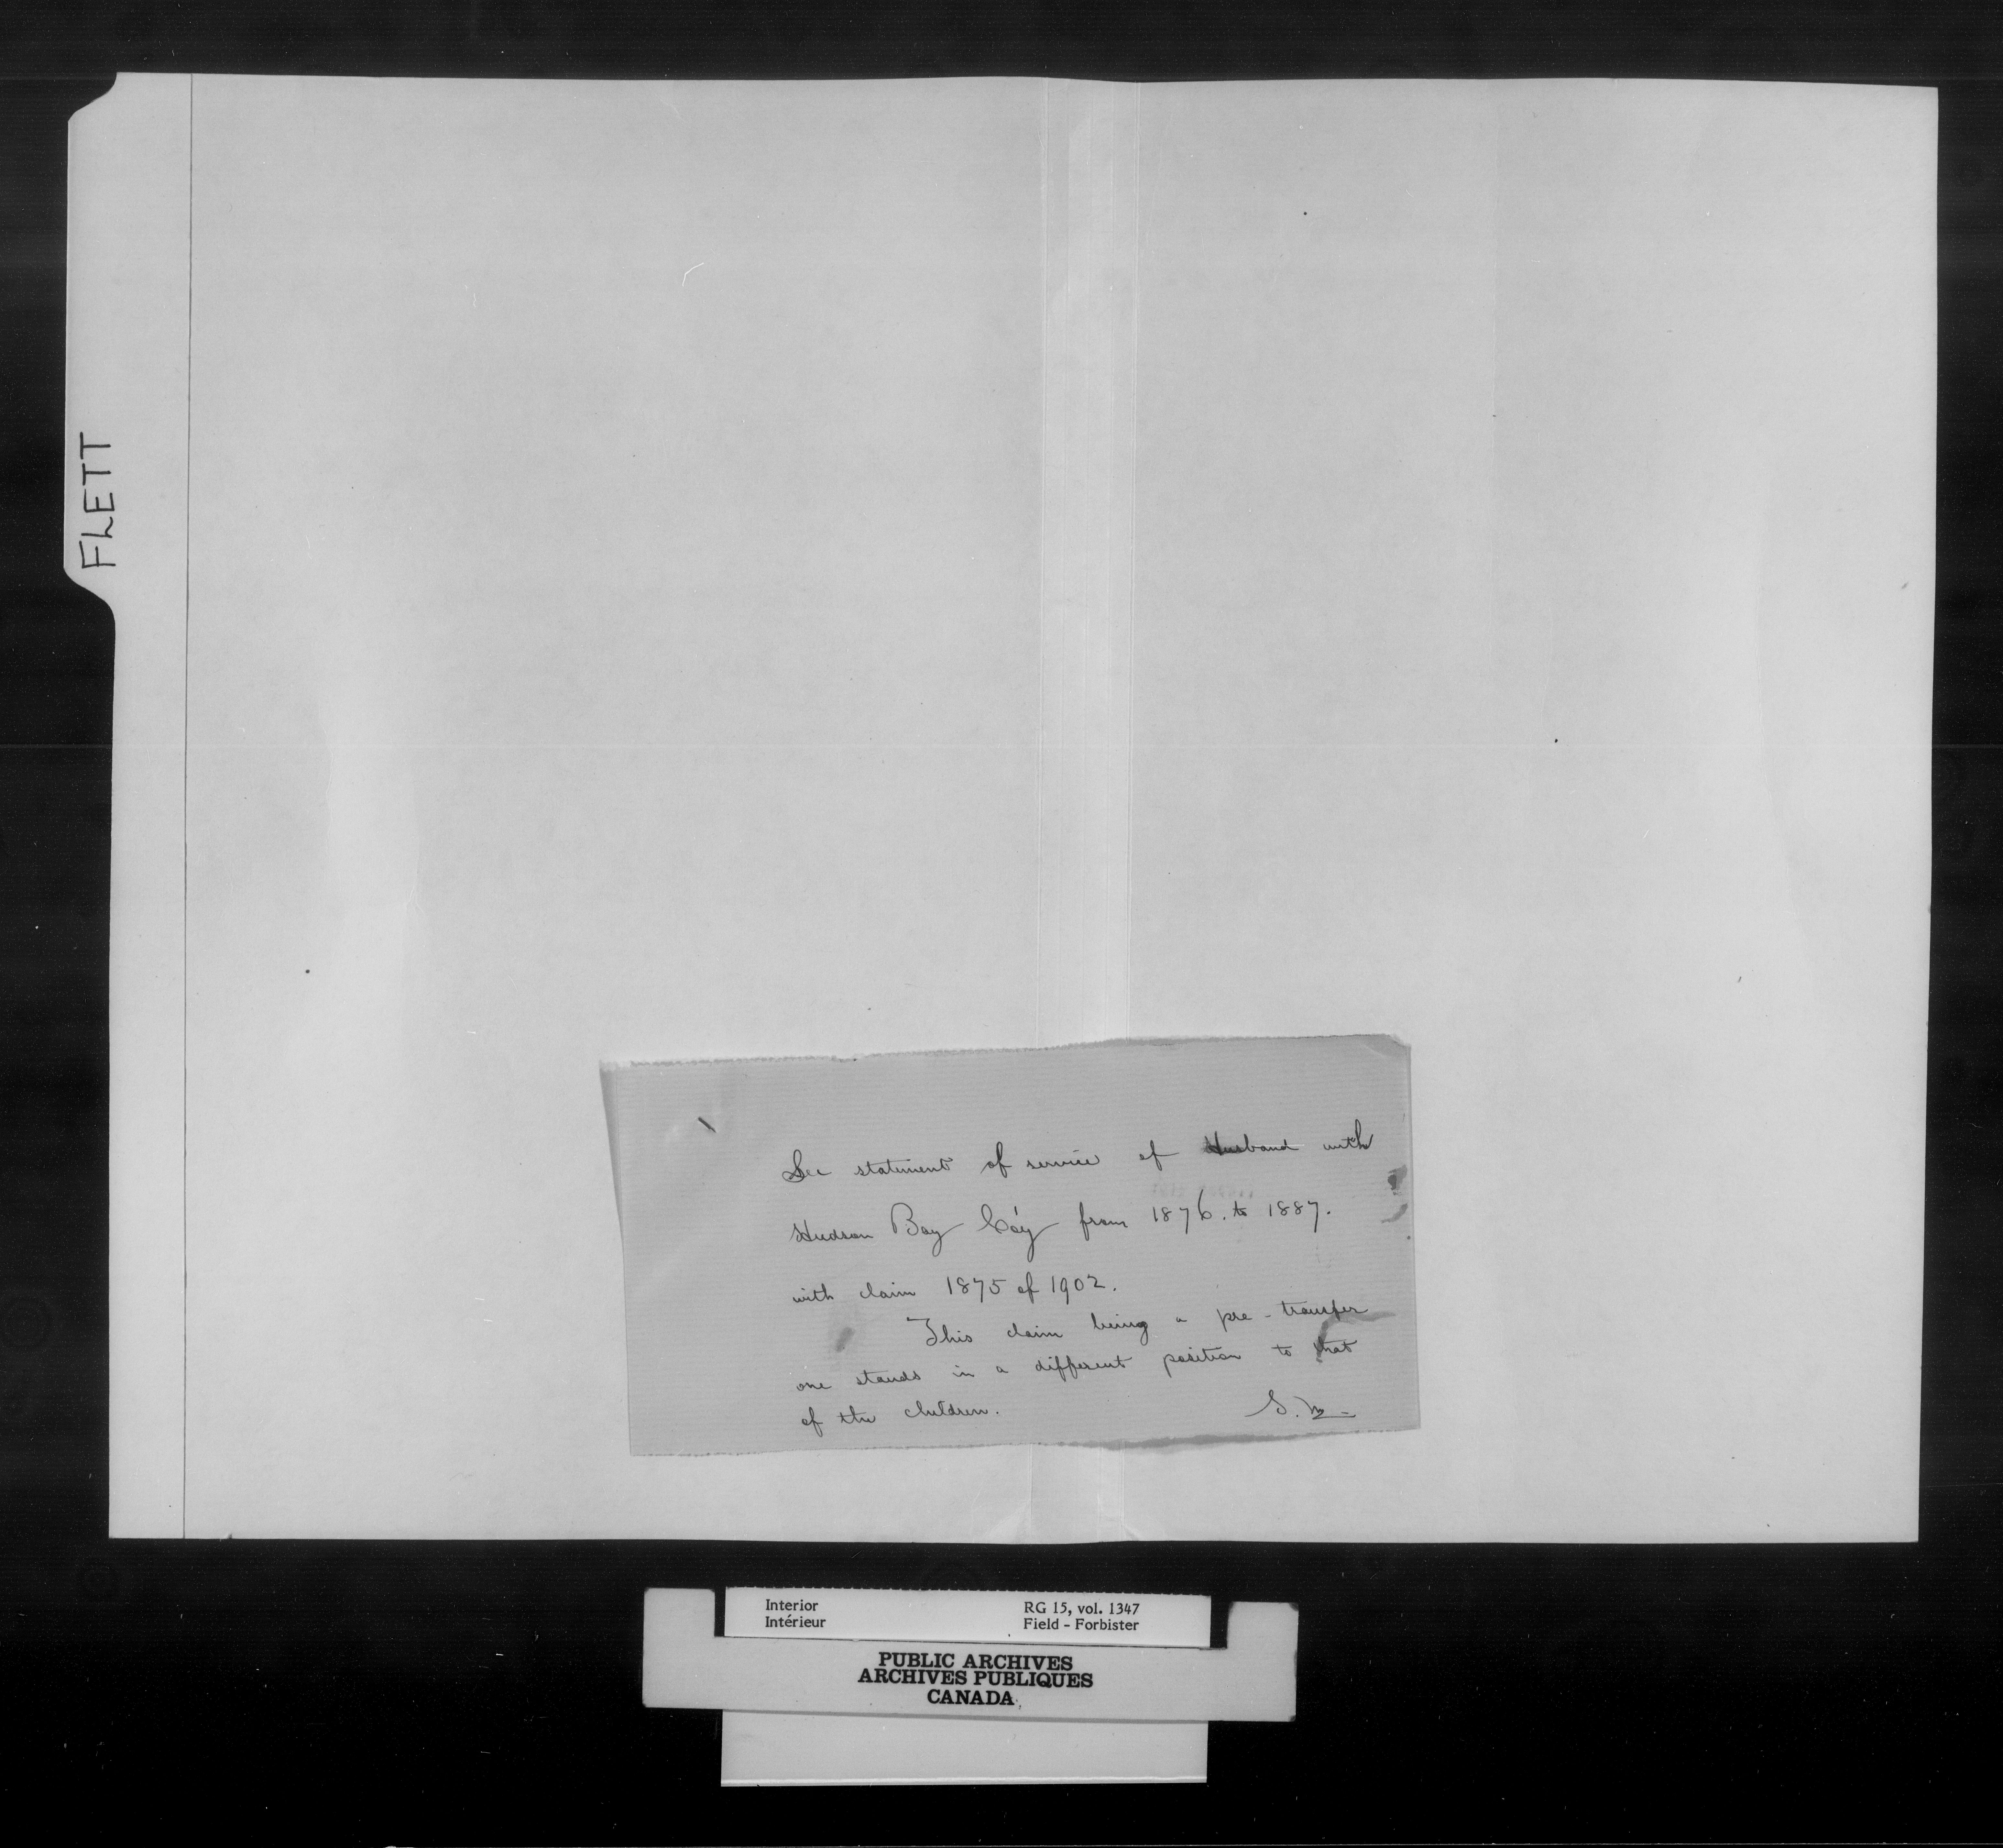 FLETT
See statement of service of Husband with
Hudson Bay Coy from 1876. to 1887.
with claim 1875 of 1902.
This claim being a pre-transfer
one stands in a different position to that
of the children.
Interior
Intérieur
RG 15, vol. 1347
Field - Forbister
PUBLIC ARCHIVES
ARCHIVES PUBLIQUES
CANADA